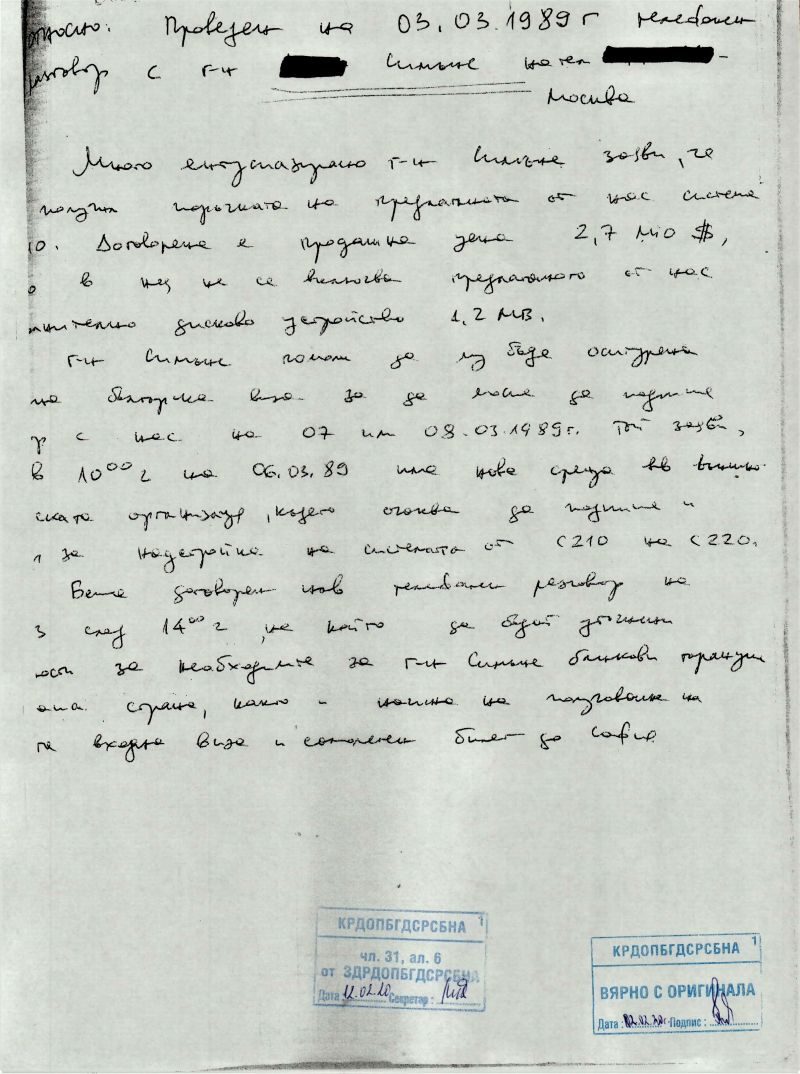 относно: Проведен на 03.03.1989 г телефонен
разговор с г-н Симънс на тел -
Москва
Много ентусиазирано г-н Симънс заяви, че
получил поръчката на предлаганата от нас система
Договорена е продажна цена 2,7 MiO $,
в нея не се включва предлаганото от нас
дисково устройство 1,2 MB.
г-н Симънс помоли да му бъде осигурена
на българска виза за да може да подпише
с нас на 07 или 08.03.1989г. Той заяви,
в 10⁰⁰ г на 06.03.89 има нова среща във външно-
ската организация, където очаква да подпише и
за надстройка на системата от C210 на C220.
Беше договорен нов телефонен разговор на
3 след 14⁰⁰ г, на който да бъдат уточнени
ости за необходимите за г-н Симънс банкови гаранции
страна, както и начина на получаване на
та входна виза и самолетен билет до София
КРДОПБГДСРСБНА 1
чл. 31, ал. 6
от ЗДРДОПБГДСРСБНА
Дата 12.02.20 Секретар:
КРДОПБГДСРСБНА 1
ВЯРНО С ОРИГИНАЛА
Дата: Подпис: